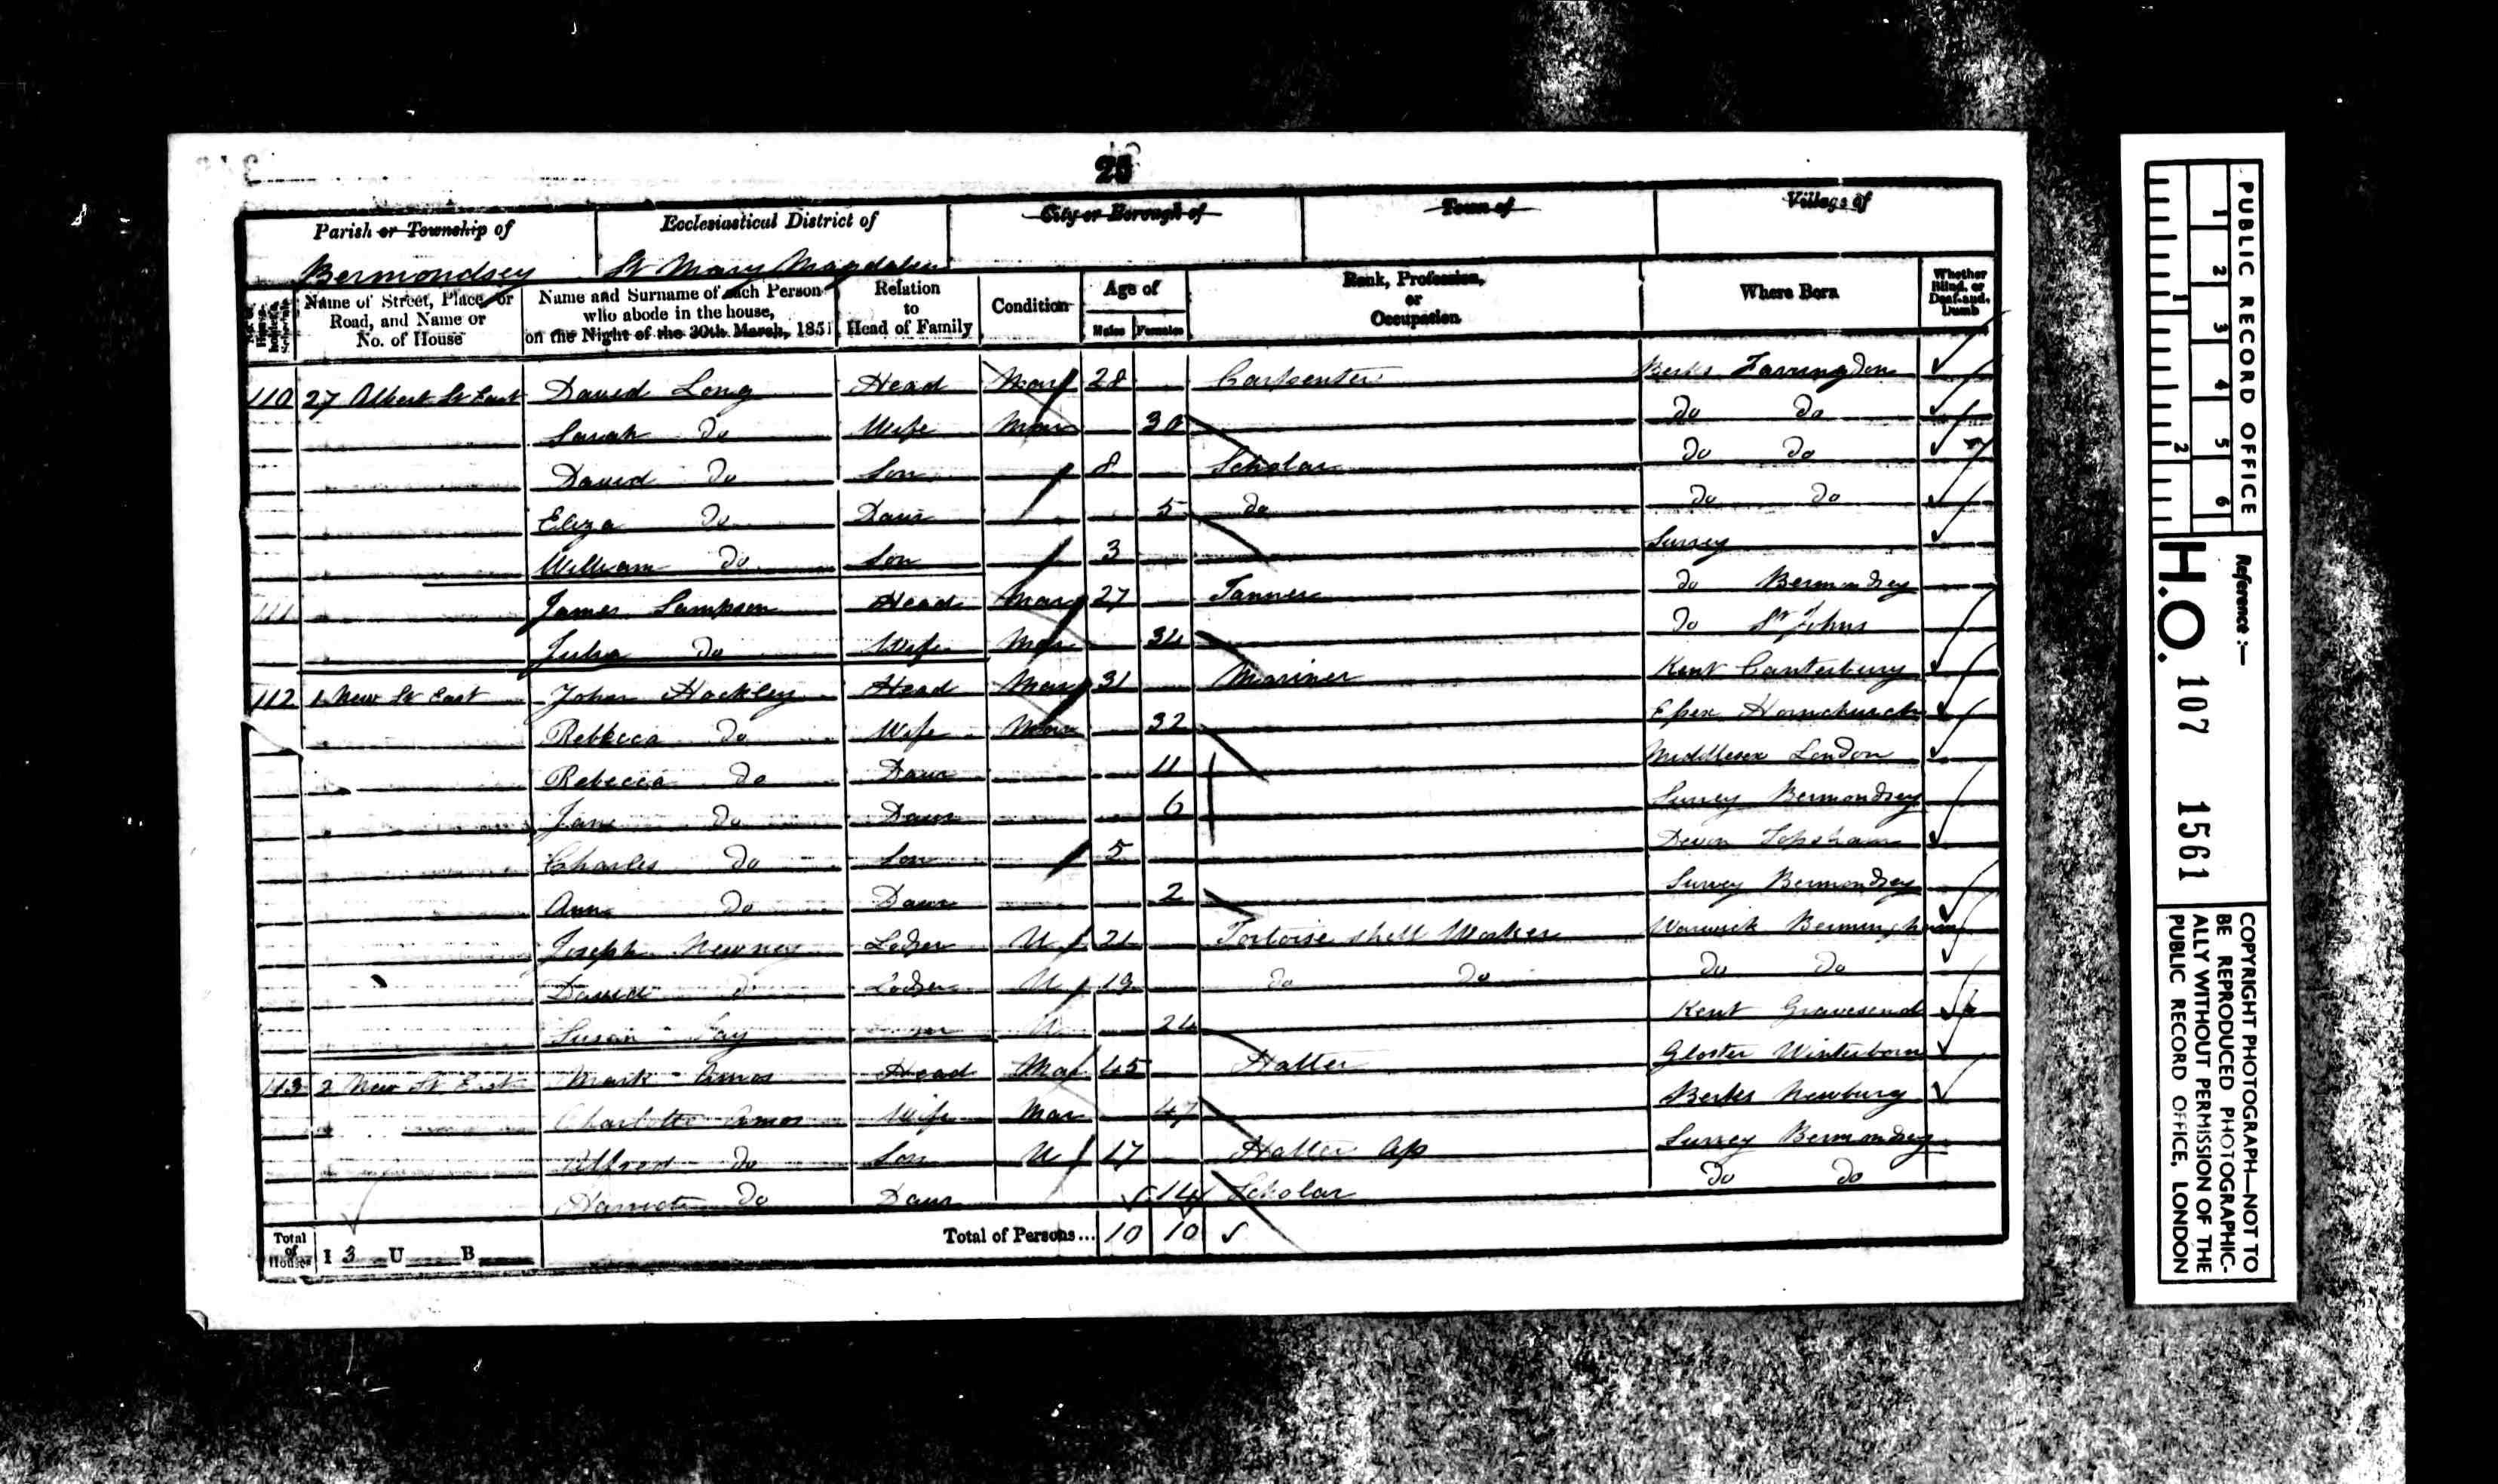 25
Parish or Township of Ecclesiastical District of City or Borough of Town of Village of
Bermondsey St Mary Magdalen
Name of Street, Place, or Road, and Name or No. of House Name and Surname of each Person who abode in the house, on the Night of the 30th March, 1851 Relation to Head of Family Condition Age of Males Females Rank, Profession, or Occupation Where Born Whether Blind, or Deaf-and-Dumb
110 27 Albert St East David Long Head Mar 28 Carpenter Berks Farringdon
Sarah Do Wife Mar 30 Do Do
David Do Son 8 Scholar Do Do
Eliza Do Daur 5 do Do Do
William Do Son 3 Surrey
111 James Sampson Head Mar 27 Tanner do Bermondsey
Julia Do Wife Mar 34 Do St Johns
112 1 New St East John Hockley Head Mar 31 Mariner Kent Canterbury
Rebkeca Do Wife Mar 32 Essex Hornchurch
Rebecca Do Daur 11 Middlesex London
Jane Do Daur 6 Surrey Bermondsey
Charles Do Son 5 Devon Topsham
Ann Do Daur 2 Surrey Bermondsey
Joseph Lodger U 21 Tortoise shell Worker Warwick Bermingham
David Lodger U 19 do do Do Do
Susan U 24 Kent Gravesend
113 2 New St East Mark Amos Head Mar 45 Hatter Gloster Winterborn
Charlotte Amos Wife Mar 47 Berks Newbury
Alfred Do Son U 17 Hatter Ap Surrey Bermondsey
Harriet Do Daur 14 Scholar Do Do
Total of Houses I 3 U B Total of Persons... 10 10
PUBLIC RECORD OFFICE
1 2 3 4 5 6
1 2
Reference :—
H.O. 107 1561
COPYRIGHT PHOTOGRAPH—NOT TO
BE REPRODUCED PHOTOGRAPHIC-
ALLY WITHOUT PERMISSION OF THE
PUBLIC RECORD OFFICE, LONDON